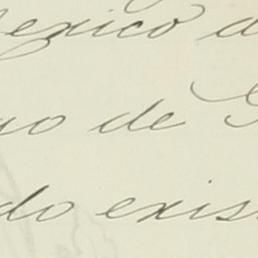 exico d
no de G
do exis